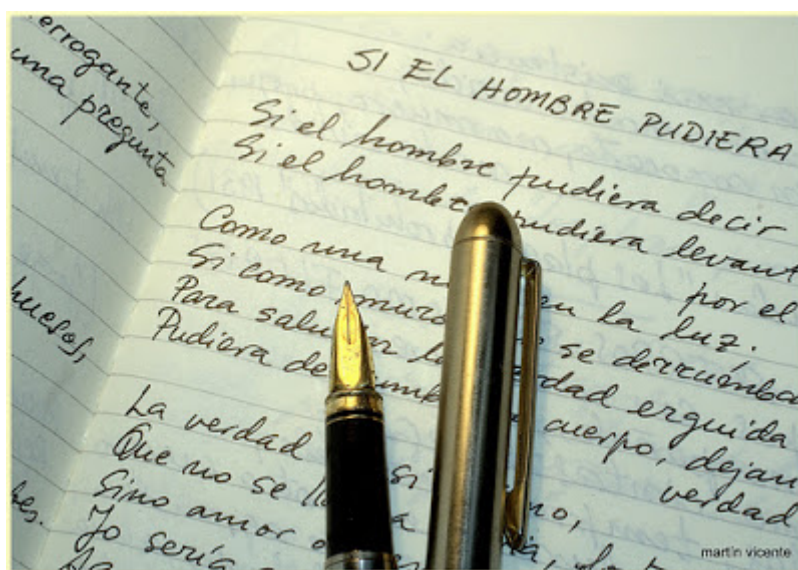 errogante,
una pregunta
huesos,
SI EL HOMBRE PUDIERA
Si el hombre pudiera decir
Si el hombre pudiera levant
por el
Como una en la luz.
Si como muros se derrumba
Para saludar la verdad erguida
Pudiera de cuerpo, dejan
verdad
La verdad si
Que no se no,
Sino amor o
Yo sería
martín vicente